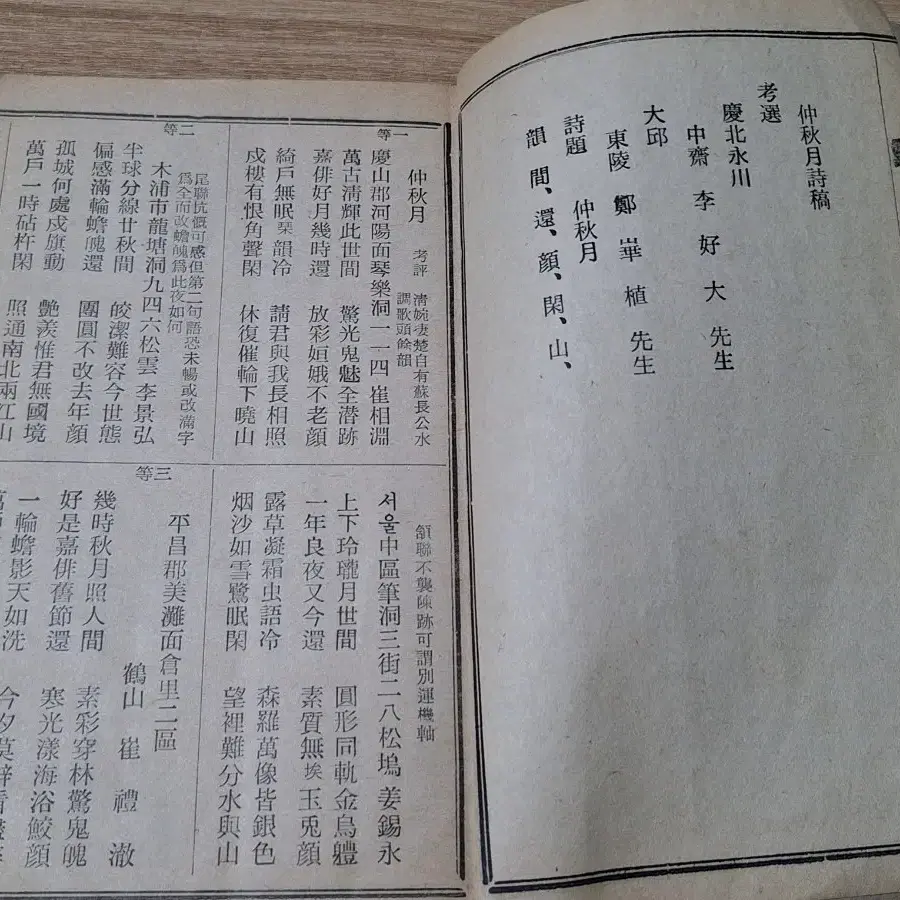 仲秋月詩稿
考選
慶北永川
中齋 李好大 先生
大邱
東陵 鄭崋植 先生
詩題 仲秋月
韻 間、還、顔、閑、山、
一等
仲秋月 考評 淸婉凄楚自有蘇長公水
調歌頭餘韻
慶山郡河陽面琴樂洞一一四 崔相淵
萬古淸輝此世間 驚光鬼魅全潜跡
嘉俳好月幾時還 放彩姮娥不老顔
綺戶無眠琹韻冷 請君與我長相照
戍樓有恨角聲閑 休復催輪下曉山
二等
尾聯忼慨可感但第二句語恐未暢或改滿字
爲全而改蟾魄爲此夜如何
木浦市龍塘洞九四六松雲 李景弘
半球分線廿秋間 皎潔難容今世態
偏感滿輪蟾魄還 團圓不改去年顔
孤城何處戍旗動 艶羨惟君無國境
萬戶一時砧杵閑 照通南北兩江山
頷聯不襲陳跡可謂別運機軸
서울中區筆洞三街二八松塢 姜錫永
上下玲瓏月世間 圓形同軌金烏軆
一年良夜又今還 素質無埃玉兎顔
露草凝霜虫語冷 森羅萬像皆銀色
烟沙如雪鷺眠閑 望裡難分水與山
三等
平昌郡美灘面倉里二區
鶴山 崔禮澈
幾時秋月照人間 素彩穿林驚鬼魄
好是嘉俳舊節還 寒光漾海浴鮫顔
一輪蟾影天如洗 今夕莫辭看